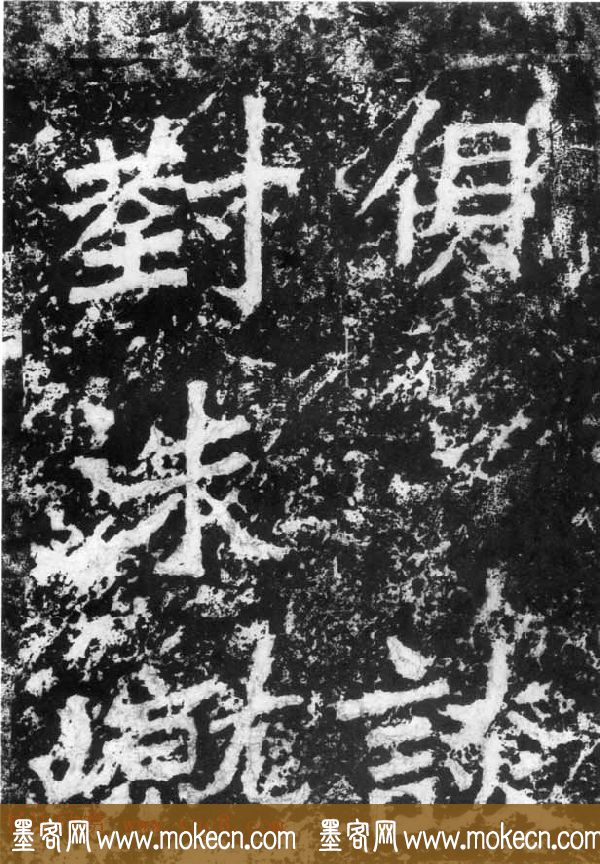 俱談
對洙嶷
墨客网 www.mokecn.com 墨客网 www.mokecn.com